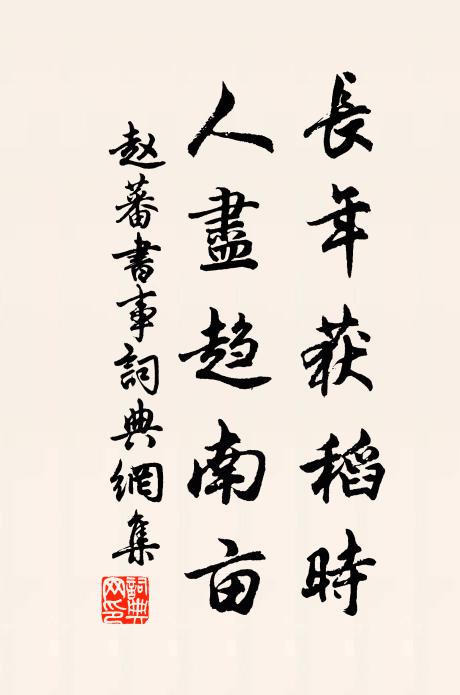 長年获稻時
人盡趋南亩
赵蕃書事詞典網集
詞典网印